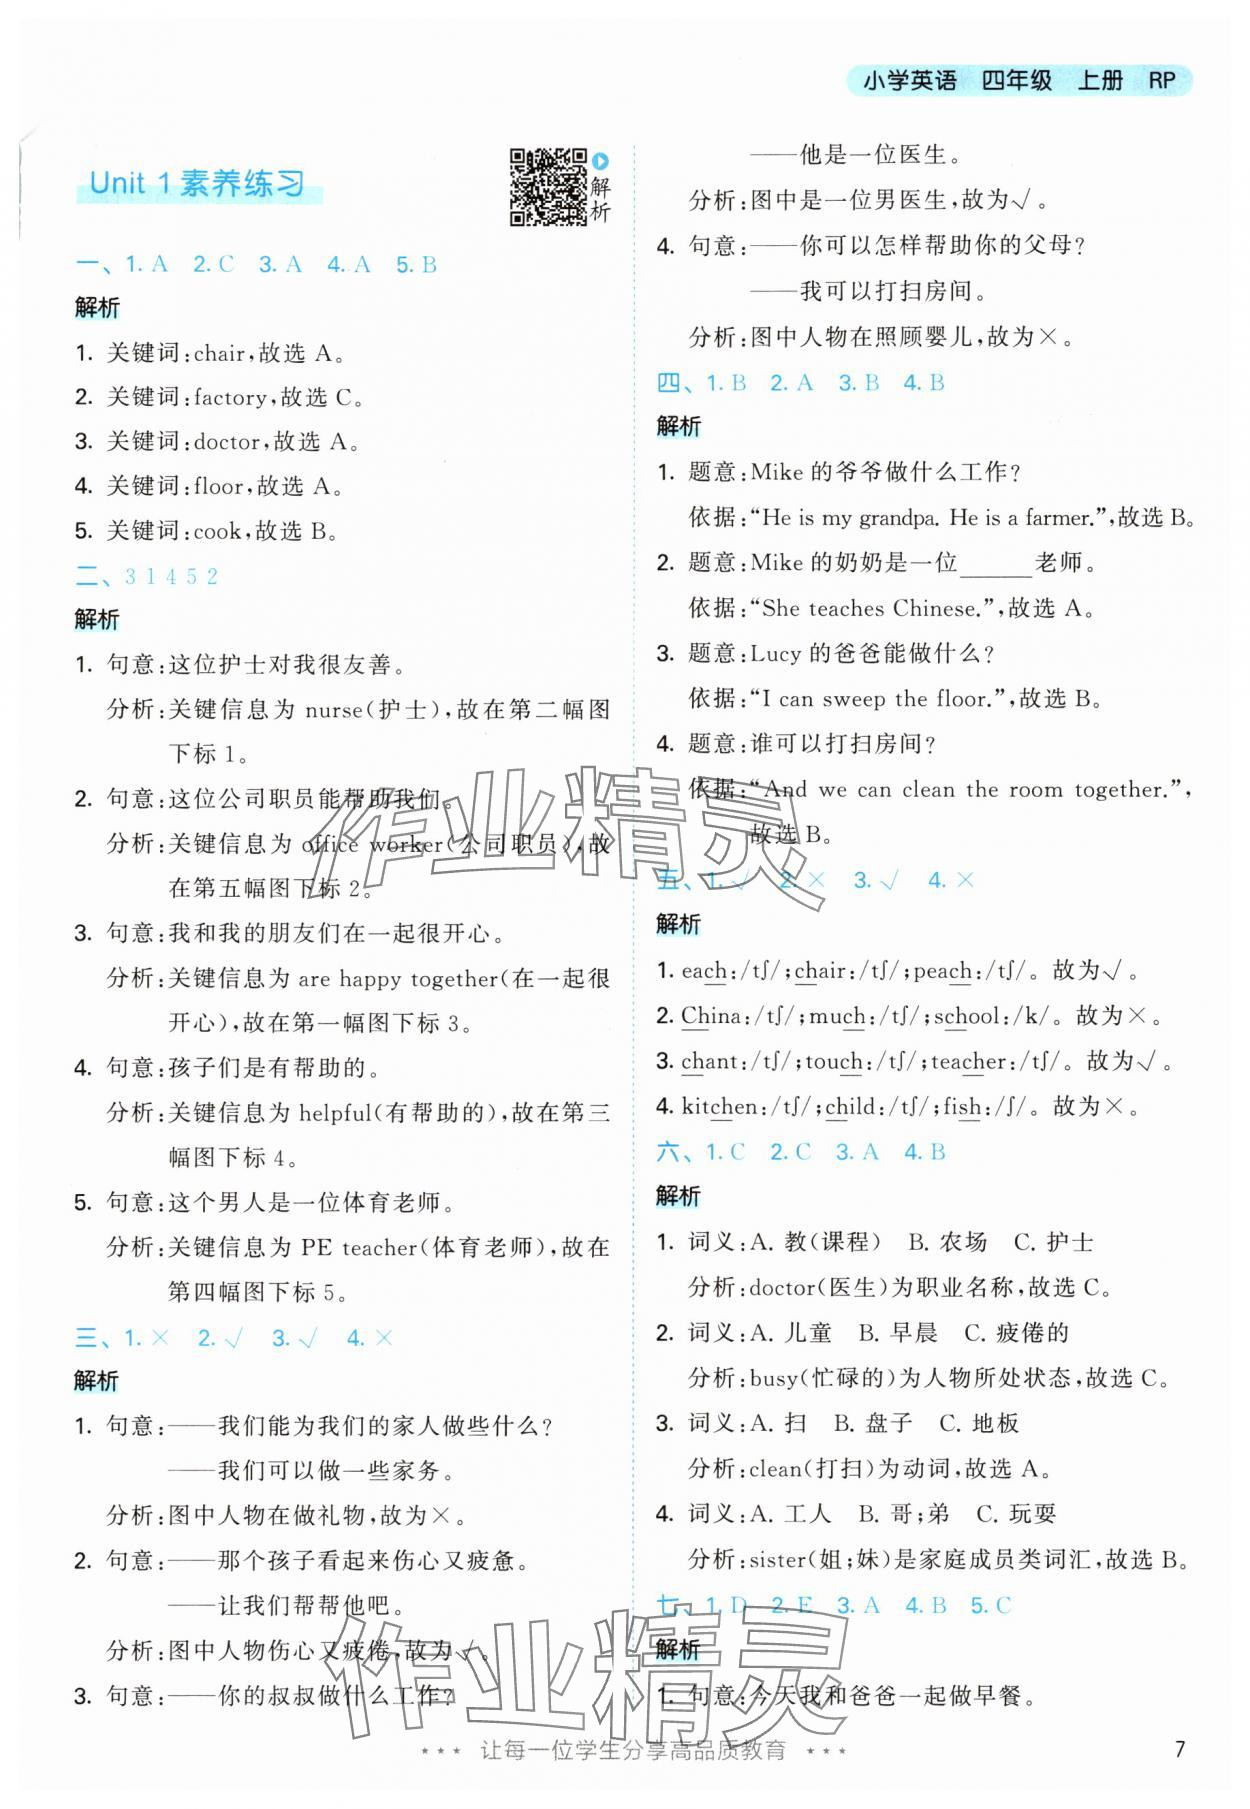 小学英语 四年级 上册 RP
Unit 1 素养练习
解析
一、1. A 2. C 3. A 4. A 5. B
解析
1. 关键词:chair,故选 A。
2. 关键词:factory,故选 C。
3. 关键词:doctor,故选 A。
4. 关键词:floor,故选 A。
5. 关键词:cook,故选 B。
二、3 1 4 5 2
解析
1. 句意:这位护士对我很友善。
分析:关键信息为 nurse(护士),故在第二幅图
下标 1。
2. 句意:这位公司职员能帮助我们。
分析:关键信息为 office worker(公司职员),故
在第五幅图下标 2。
3. 句意:我和我的朋友们在一起很开心。
分析:关键信息为 are happy together(在一起很
开心),故在第一幅图下标 3。
4. 句意:孩子们是有帮助的。
分析:关键信息为 helpful(有帮助的),故在第三
幅图下标 4。
5. 句意:这个男人是一位体育老师。
分析:关键信息为 PE teacher(体育老师),故在
第四幅图下标 5。
三、1. × 2. √ 3. √ 4. ×
解析
1. 句意:——我们能为我们的家人做些什么?
——我们可以做一些家务。
分析:图中人物在做礼物,故为×。
2. 句意:——那个孩子看起来伤心又疲惫。
——让我们帮帮他吧。
分析:图中人物伤心又疲倦,故为√。
3. 句意:——你的叔叔做什么工作?
——他是一位医生。
分析:图中是一位男医生,故为√。
4. 句意:——你可以怎样帮助你的父母?
——我可以打扫房间。
分析:图中人物在照顾婴儿,故为×。
四、1. B 2. A 3. B 4. B
解析
1. 题意:Mike 的爷爷做什么工作?
依据:“He is my grandpa. He is a farmer.”,故选 B。
2. 题意:Mike 的奶奶是一位______老师。
依据:“She teaches Chinese.”,故选 A。
3. 题意:Lucy 的爸爸能做什么?
依据:“I can sweep the floor.”,故选 B。
4. 题意:谁可以打扫房间?
依据:“And we can clean the room together.”,
故选 B。
五、1. √ 2. × 3. √ 4. ×
解析
1. each:/tʃ/;chair:/tʃ/;peach:/tʃ/。故为√。
2. China:/tʃ/;much:/tʃ/;school:/k/。故为×。
3. chant:/tʃ/;touch:/tʃ/;teacher:/tʃ/。故为√。
4. kitchen:/tʃ/;child:/tʃ/;fish:/ʃ/。故为×。
六、1. C 2. C 3. A 4. B
解析
1. 词义:A. 教(课程) B. 农场 C. 护士
分析:doctor(医生)为职业名称,故选 C。
2. 词义:A. 儿童 B. 早晨 C. 疲倦的
分析:busy(忙碌的)为人物所处状态,故选 C。
3. 词义:A. 扫 B. 盘子 C. 地板
分析:clean(打扫)为动词,故选 A。
4. 词义:A. 工人 B. 哥;弟 C. 玩耍
分析:sister(姐;妹)是家庭成员类词汇,故选 B。
七、1. D 2. E 3. A 4. B 5. C
解析
1. 句意:今天我和爸爸一起做早餐。
作业精灵
作业精灵
*** 让每一位学生分享高品质教育 ***
7